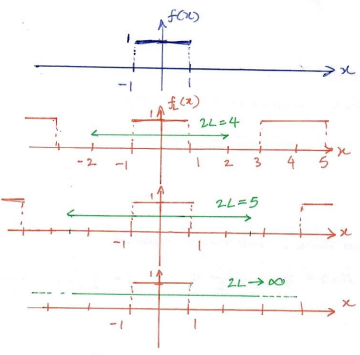 f(x)
1
-1 1 x
f_L(x)
1 2L=4
-2 -1 1 2 3 4 5 x
1 2L=5
-1 1 x
1 2L→∞
-1 1 x